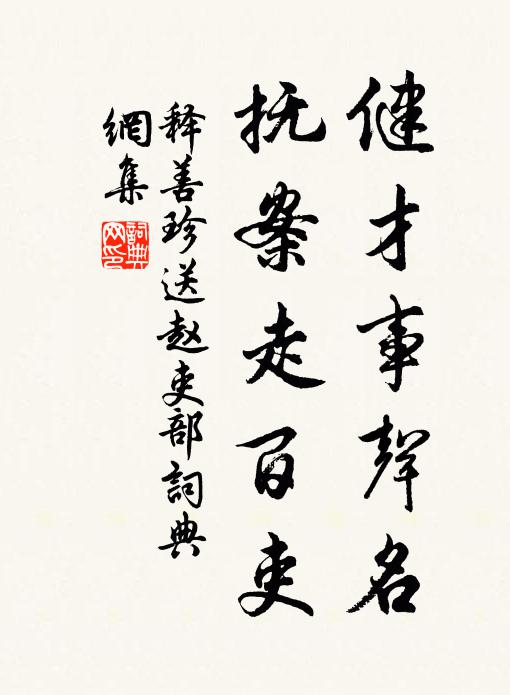 健才事聲名
抚案走百吏
释善珍送赵吏部詞典
網集
詞典
网印